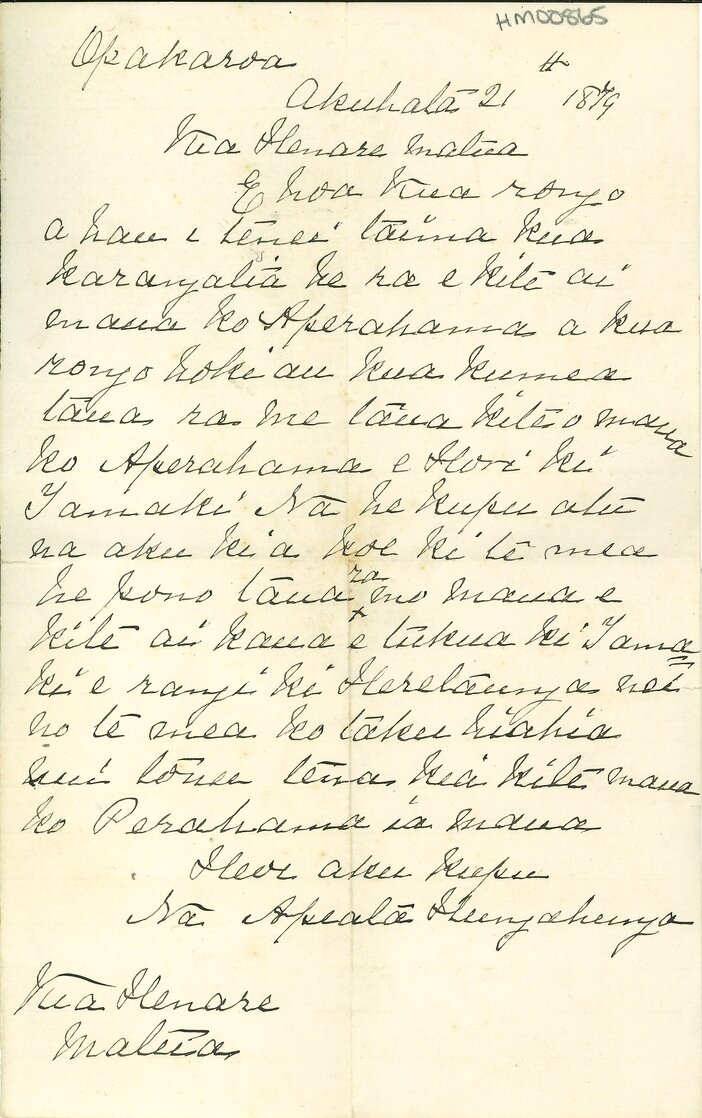 HM00865
Opakaroa
Akuhata 21 1879
Kia Henare Matua
E hoa kua rongo
a hau i tenei taima kua
karangatia he ra e kite ai
maua ko Aperahama a kua
rongo hoki au kua kumea
tana ra me tana kite o maua
ko Aperahama e Hori ki
Tamaki Na he kupu atu
na aku ki a koe ki te mea
he pono tana ra mo maua e
kite ai kaua e tukua ki Tama
ki e rangi ki Heretaunga nei
no te mea ko taku hiahia
nui tonu tena kia kite maua
ko Perahama ia maua
Heoi aku kupu
Na Apiata Hungahunga
Kia Henare
Matua